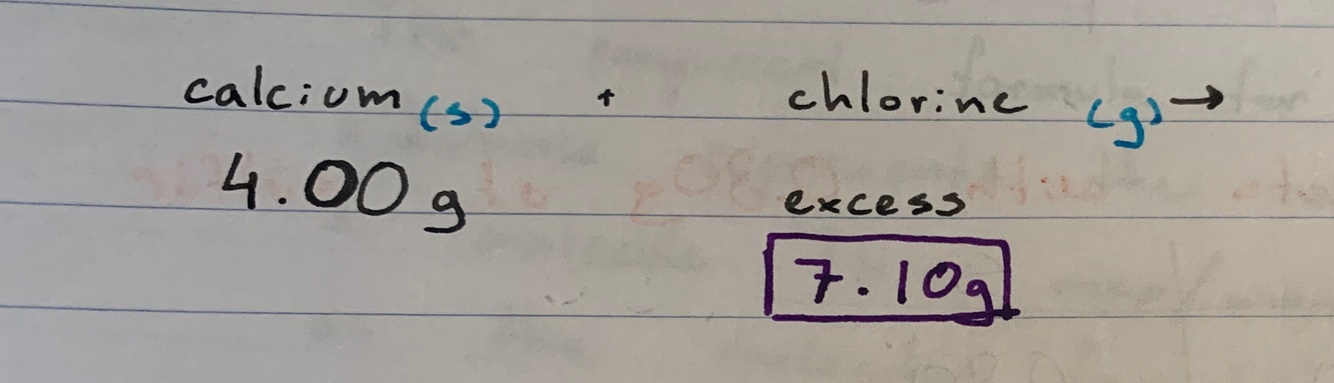 calcium (s) + chlorine (g) →
4.00 g excess
7.10g